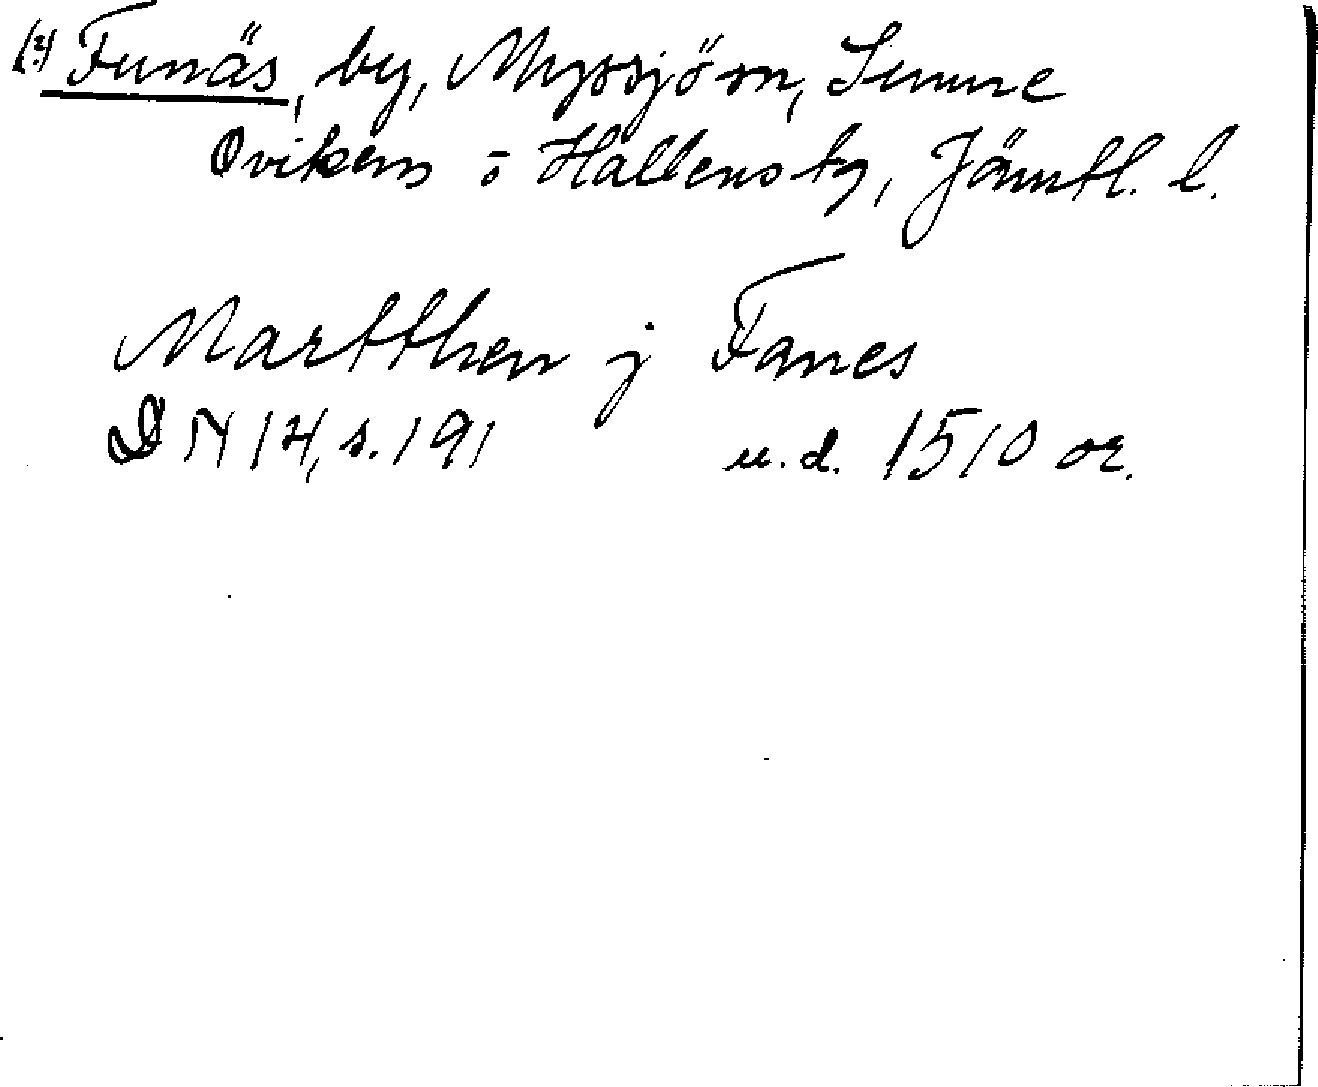 (?) Funäs, by, Myssjö sn, Sunne
Ovikens o Hallens tg, Jämtl. l.
Martthen j Fanes
DN 14, s. 191 u.d. 1510 or.